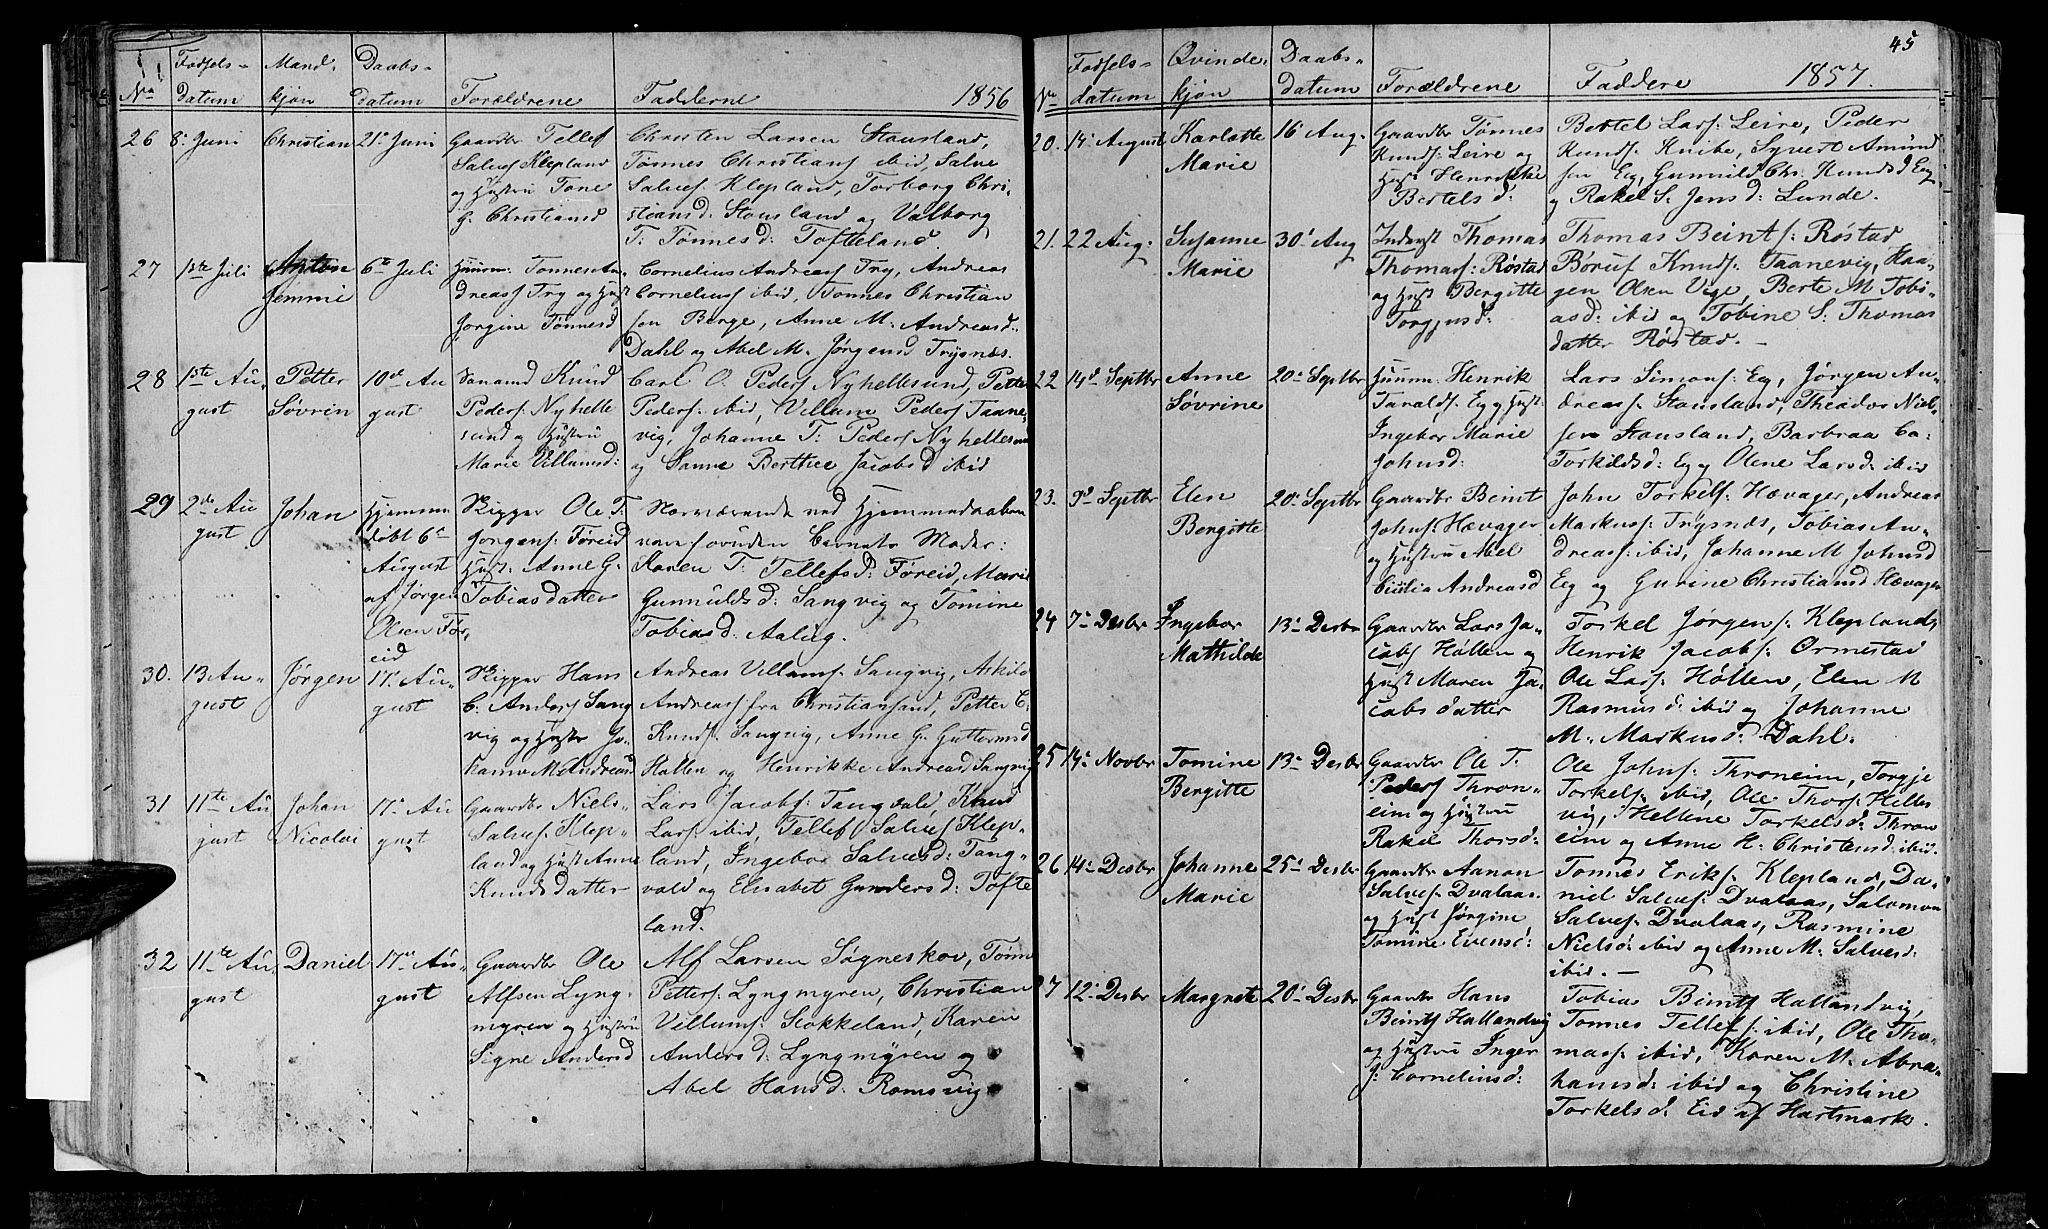 Fødsels- Mand. Daabs-
No datum kjøn datum Forældrene Fadderne 1856
26 8de Juni Christian 21de Juni Gaardbr Tellef
Salves: Klepland
og Hustru Tone
G. Christiansd
Christen Larsen Stausland,
Tønnes Christians: ibid, Salve
Salves: Klepland, Torborg Chri-
stiansd: Stausland og Valborg
T: Tønnesd: Tofteland.
27 1ste Juli Anton
Jemmi
6te Juli Huusm: Tønnes An-
dreas: Try og Hust
Jørgine Tønnesd
Cornelius Andreas: Try, Andreas
Cornelius: ibid, Tønnes Christian
sen Berge, Anne M. Andreasd:
Dahl og Abel M. Jørgensd Trysnæs.
28 1ste Au
gust
Petter
Søvrin
10de Au
gust
Knud
Peders: Nyhelle
sund og Hustru
Marie Villumsd:
Carl O. Peders: Nyhellesund, Petter
Peders: ibid, Villum Peders Taane-
vig, Johanne T: Peders Nyhellesund
og Sanne Berthee Jacobsd ibid
29 2de Au
gust
Johan
Hjemme
døbt 6te
August
af Jørgen
Olsen Før,
eid
Skipper Ole T.
Jørgens: Føreid
Hust: Anne G.
Tobiasdatter
Nærværende ved Hjemmedaaben
vare foruden Barnets Moder:
Karen T: Tellefsd: Føreid, Marie
Gunnuldsd: Sangvig og Tomine
Tobiasd: Aalug.
30. 13 Au-
gust
Jørgen
17de Au-
gust
Skipper Hans
C. Anders: Sang
vig og Hustr Jo-
hanne M. Andreasd
Andreas Villums: Sangvig, Askild
Andreas: fra Christiansand, Petter C.
Knuds: Sangvig, Anne G. Guttormsd
Høllen og Henrikke Andreasd Sangvig
31 11te Au
gust
Johan
Nicolai
17de Au
gust
Gaardbr Niels
Salves: Klep-
land og Hust Anne
Knudsdatter
Lars Jacobs: Tangvald, Knud
Lars: ibid, Tellef Salves: Klep-
land, Ingebor Salvesd: Tang-
vald og Elisabet Gundersd: Tofte
land.
32 11te Au
gust
Daniel
17de Au-
gust
Gaardbr Ole
Alfsen Lyng-
myren og Hustru
Signe Andersd
Alf Larsen Søgneskov, Tønnes
Petters: Lyngmyren, Christian
Villums: Stokkeland, Karen
Andersd: Lyngmyren og
Abel Hansd: Romsvig
45
Fødsels- Qvinde. Daabs-
No datum kjøn datum Forældrene Faddere 1857.
20. 14de August Karlatte
Marie
16 Aug. Gaardbr Tønnes
Knuds: Leire og
Hust Henrikke
Bertelsd:
Bertel Lars: Leire, Peder
Knuds: Knibe, Syvert Amund
sen Eg, Gunnild Chr. Knudsd Eg
og Rakel S. Jensd: Lunde.
21. 22 Aug: Susanne
Marie
30de Aug Inderst Thomas
Thomas: Røstad
og Hust Bergitte
Torgjusd:
Thomas Beints: Røstad
Børuf Knuds: Taanevig, Haa-
gen Olsen Vige, Berte M Tobi-
asd: ibid og Tobine S: Thomas
datter Røstad. -
22 14de Septbr Anne
Søvrine
20de Septbr Huusm: Henrik
Taralds: Eg og Hust:
Ingebor Marie
Johnsd:
Lars Simons: Eg, Jørgen An-
dreas: Stausland, Theodor Niel-
sen Stausland, Barbraa Ca-
Torkildsd: Eg og Olene Larsd: ibid
23. 9de Septbr Elen
Bergitte
20de Septbr Gaardbr Beint
Johns: Hævager
og Hustru Abel
Andreasd
John Torkels: Hævager, Andreas
Markus: Trysnæs, Tobias An-
dreas: ibid, Johanne M Johnsd
Eg og Gurine Christiansd Hævager
24 7de Desbr Ingebor
Mathilde
13de Desbr Gaardbr Lars Ja-
cobs Høllen og
Hust Maren Ja-
cobsdatter
Torkel Jørgens: Klepland,
Henrik Jacobs: Ormestad
Ole Lars: Høllen, Elen M
Rasmusd: ibid og Johanne
M. Markusd: Dahl.
25 14de Novbr Tomine
Bergitte
13de Desbr Gaardbr Ole T.
Peders Thron-
eim og Hustru
Rakel Thorsd:
Ole Johns: Throneim, Torgje
Torkels: ibid, Ole Thors: Helles
vig, Hellene Torkelsd: Thron
eim og Anne H. Christensd: ibid.
26 14de Desbr Johanne
Marie
25de Desbr Gaardbr Aanon
Salves: Dvalaas.
og Hust Jørgine
Tomine Evensd:
Tønnes Eriks: Klepland, Da-
niel Salves: Dvalaas, Salomon
Salves: Dvalaas, Rasmine
Nielsd: ibid og Anne M. Salvesd:
ibid. -
27 12de Desbr Margrete 20de Desbr Gaardbr Hans
Beints Hallandvig
og Hustru Inger
J. Cornelinsd:
Tobias Beints Hallandvig,
Tønnes Tellefs: ibid, Ole Tho-
mas: ibid, Karen M. Abra-
hamsd: ibid og Christine
Torkelsd: Eid af Hartmark.